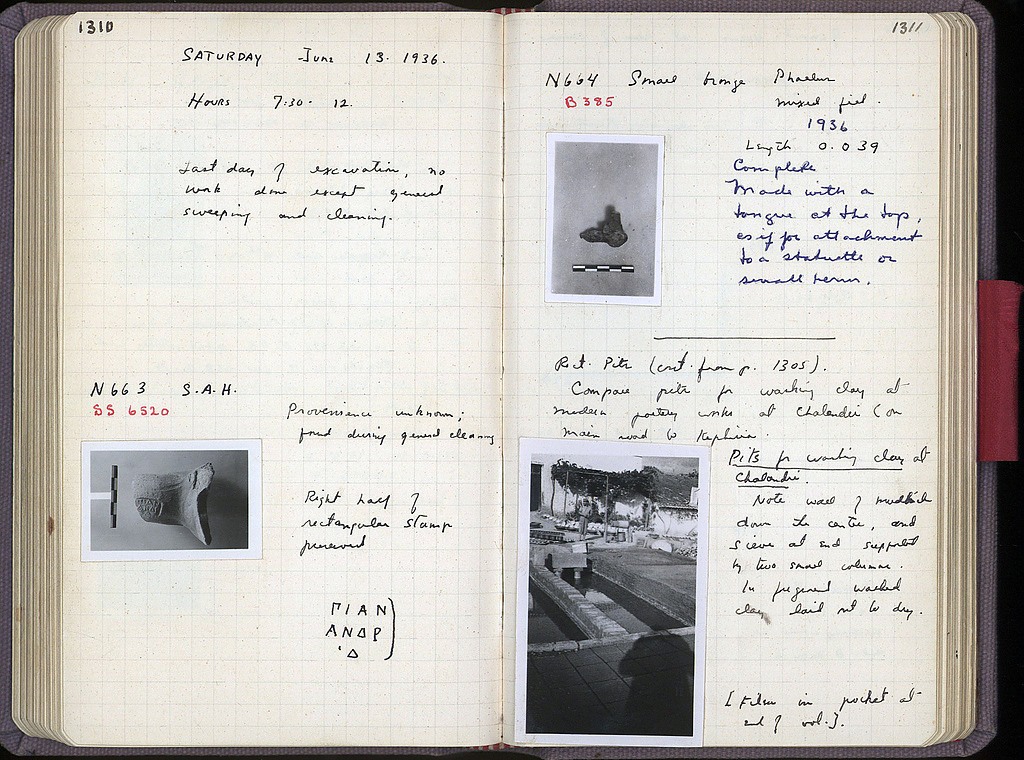 1310
SATURDAY June 13. 1936.
Hours 7:30 - 12.
Last day of excavation, no
work done except general
sweeping and cleaning.
N663 S.A.H.
SS 6520
Provenience unknown;
found during general cleaning.
Right half of
rectangular stamp
preserved
ΓΙΑΝ
ΑΝΔΡ
Δ
1311
N664 Small bronze Phallus
B 385
mixed fill.
1936
Length 0.039
Complete
Made with a
tongue at the top,
as if for attachment
to a statuette or
small herm.
Rect. Pits (cont. from p. 1305).
Compare pits for washing clay at
modern pottery works at Chalandri (on
main road to Kephisia.
Pits for washing clay at
Chalandri.
Note wall of mudbrick
down the centre, and
sieve at end supported
by two small columns.
In foreground washed
clay laid out to dry.
[Film in pocket at
end of vol.].